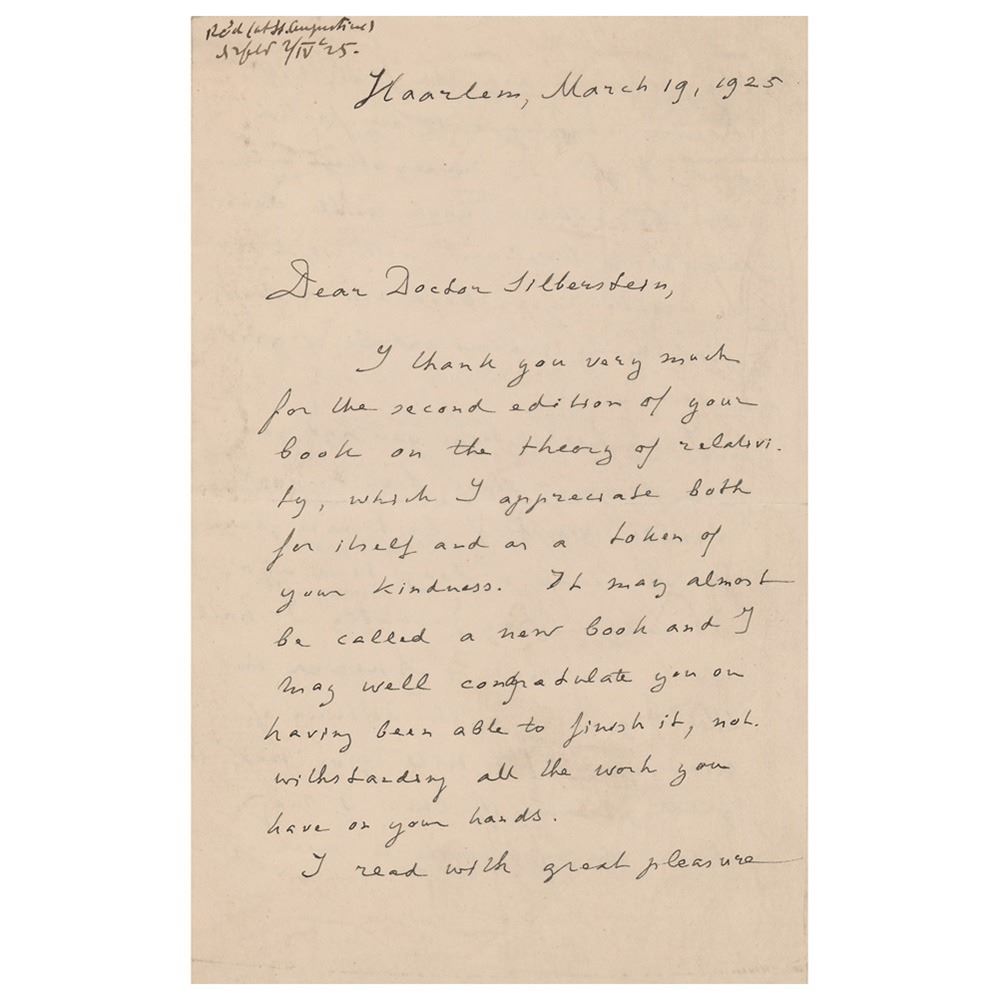 Rec'd (at St. Augustine)
2/IV 25.
Haarlem, March 19, 1925
Dear Doctor Silberstein,
I thank you very much
for the second edition of your
book on the theory of relativi-
ty, which I appreciate both
for itself and as a token of
your kindness. It may almost
be called a new book and I
may well congratulate you on
having been able to finish it, not-
withstanding all the work you
have on your hands.
I read with great pleasure